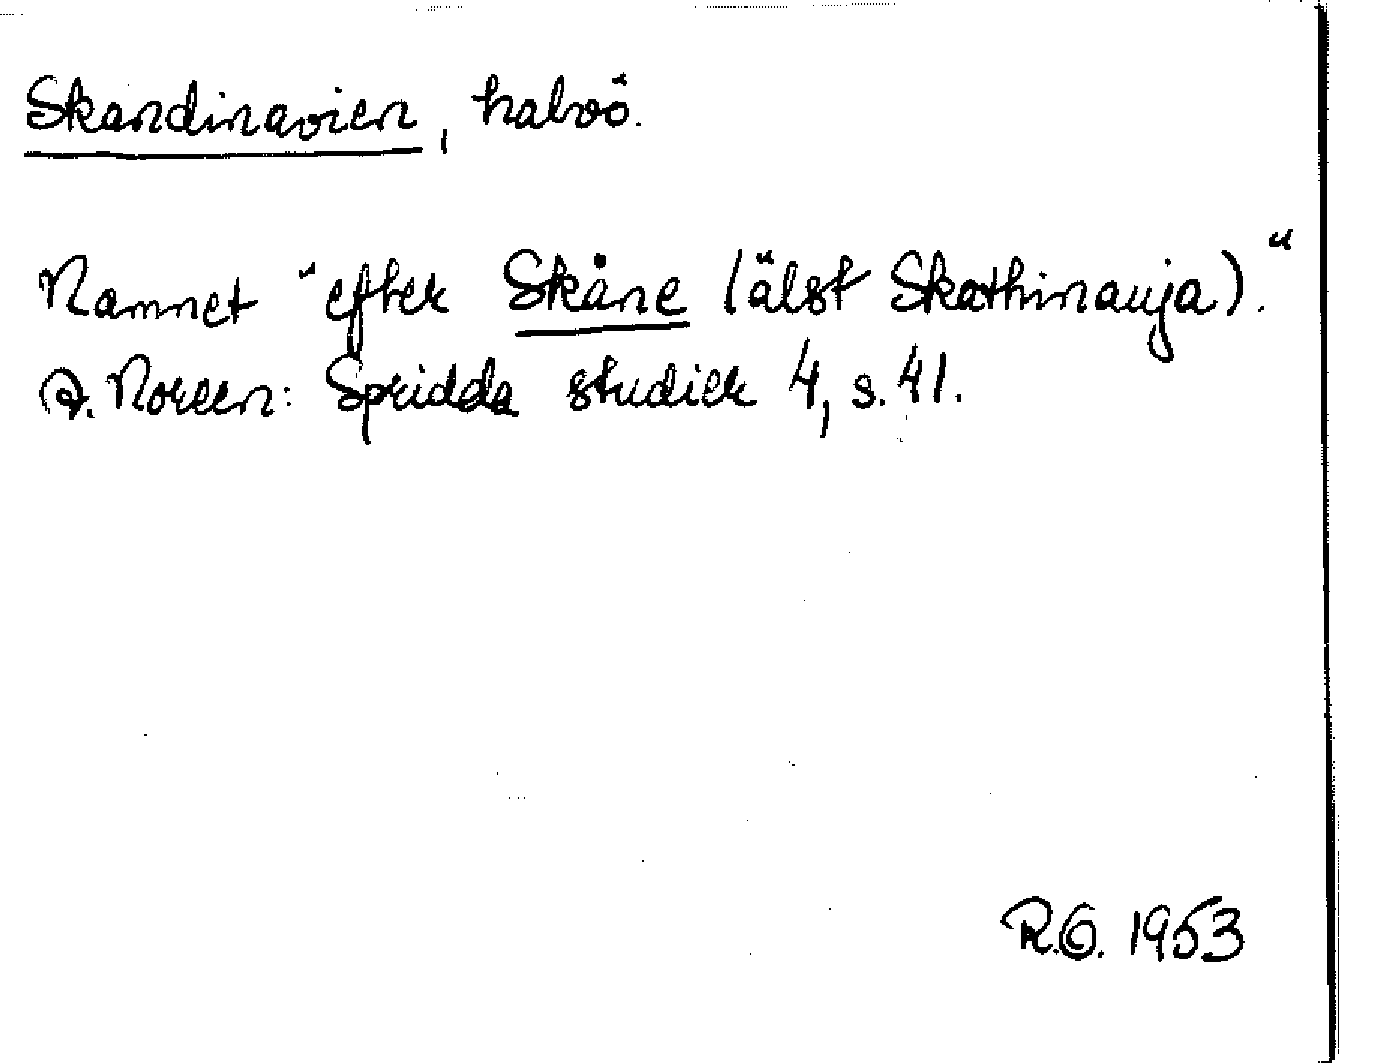 Skandinavien, halvö.
Namnet "efter Skåne (älst Skathinauja)."
A. Noreen: Spridda studier 4, s. 41.
R.G. 1953